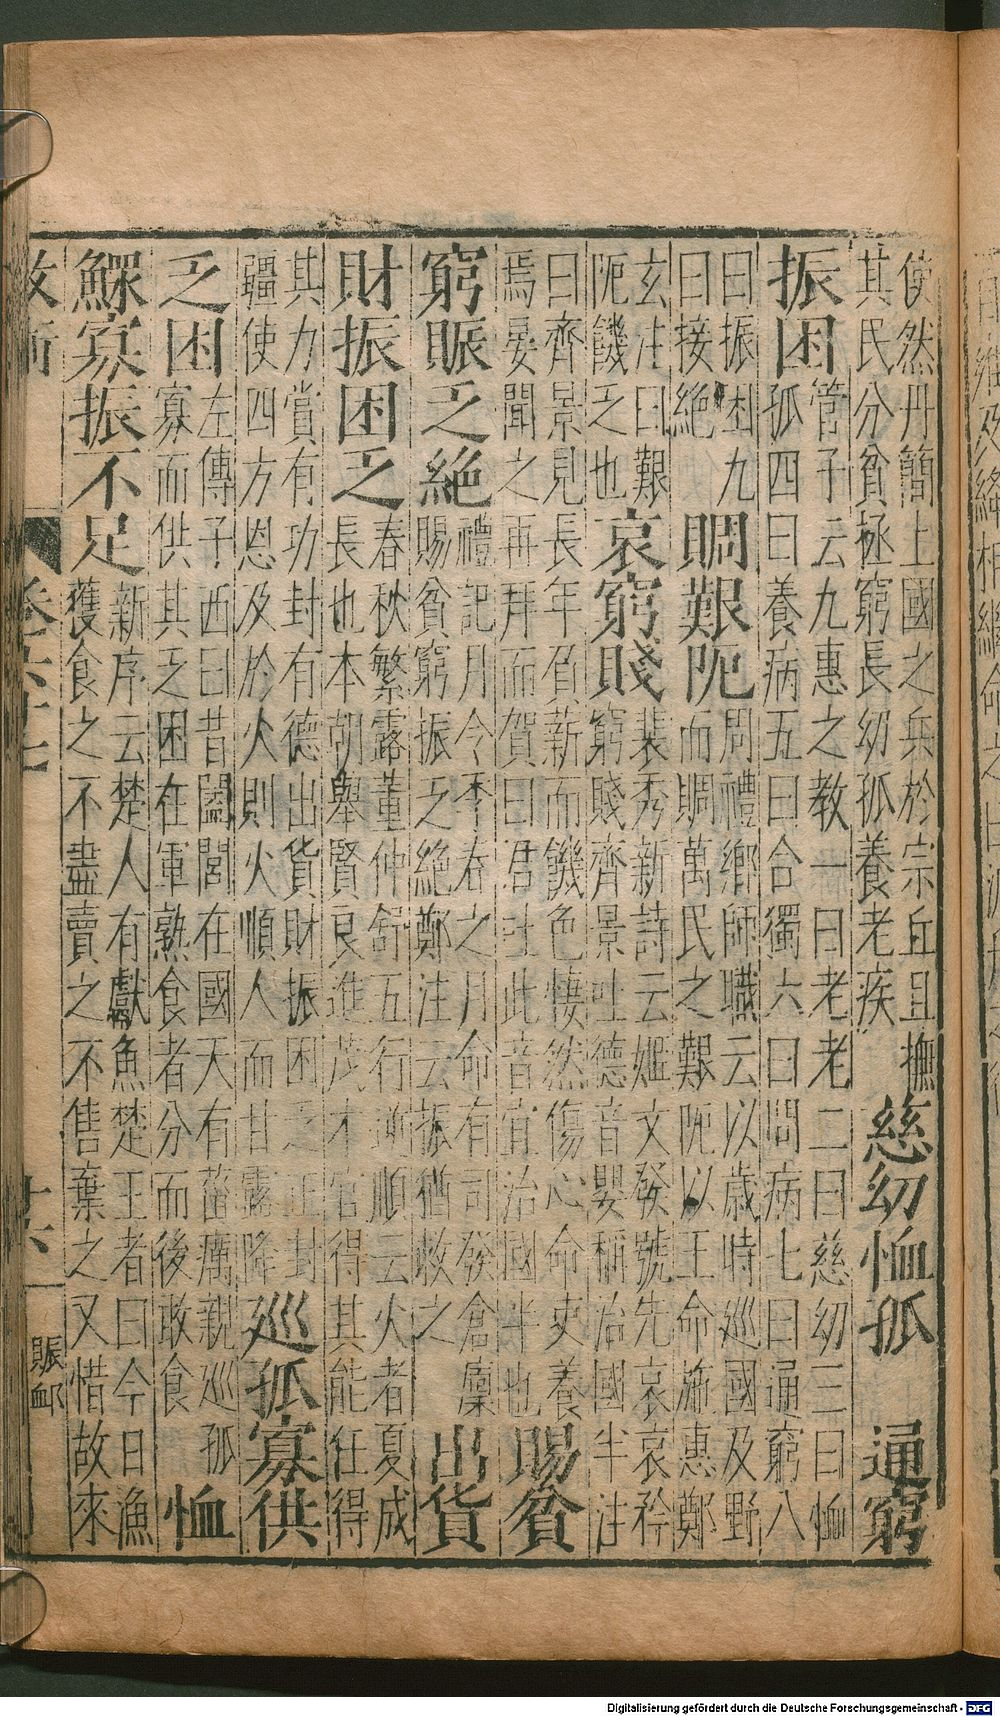 使然丹簡上國之兵於宗丘且撫
其民分貧極窮長幼孤養老疾
慈幼恤孤　通窮
振困
管子云九惠之教一曰老老二曰慈幼三曰恤
孤四曰養病五曰合獨六曰問病七曰通窮八
曰振困九
曰接絕
賙艱阨
周禮鄉師職云以歲時巡國及野
而賙萬民之艱阨以王命施惠鄭
玄注曰艱
阨饑乏也
哀窮賤
裴秀新詩云姬文發號先哀哀矜
窮賤齊景吐德音嬰稱治國半注
曰齊景見長年負薪而饑色悽然傷心命吏養
焉晏聞之再拜而賀曰君吐此音宜治國半也
賜貧
窮賑乏絕
禮記月令季春之月命有司發倉廩
賜貧窮振乏絕鄭注云振猶救之
出貨
財振困乏
春秋繁露董仲舒五行逆順云火者夏成
長也本朝舉賢良進茂才官得其能任得
其力賞有功封有德出貨財振困乏正封
疆使四方恩及於火則火順人而甘露降
巡孤寡供
乏困
左傳子西曰昔闔閭在國天有菑癘親巡孤
寡而供其乏困在軍熟食者分而後敢食
恤
鰥寡振不足
新序云楚人有獻魚楚王者曰今日漁
獲食之不盡賣之不售棄之又惜故來
賑卹
Digitalisierung gefördert durch die Deutsche Forschungsgemeinschaft - DFG